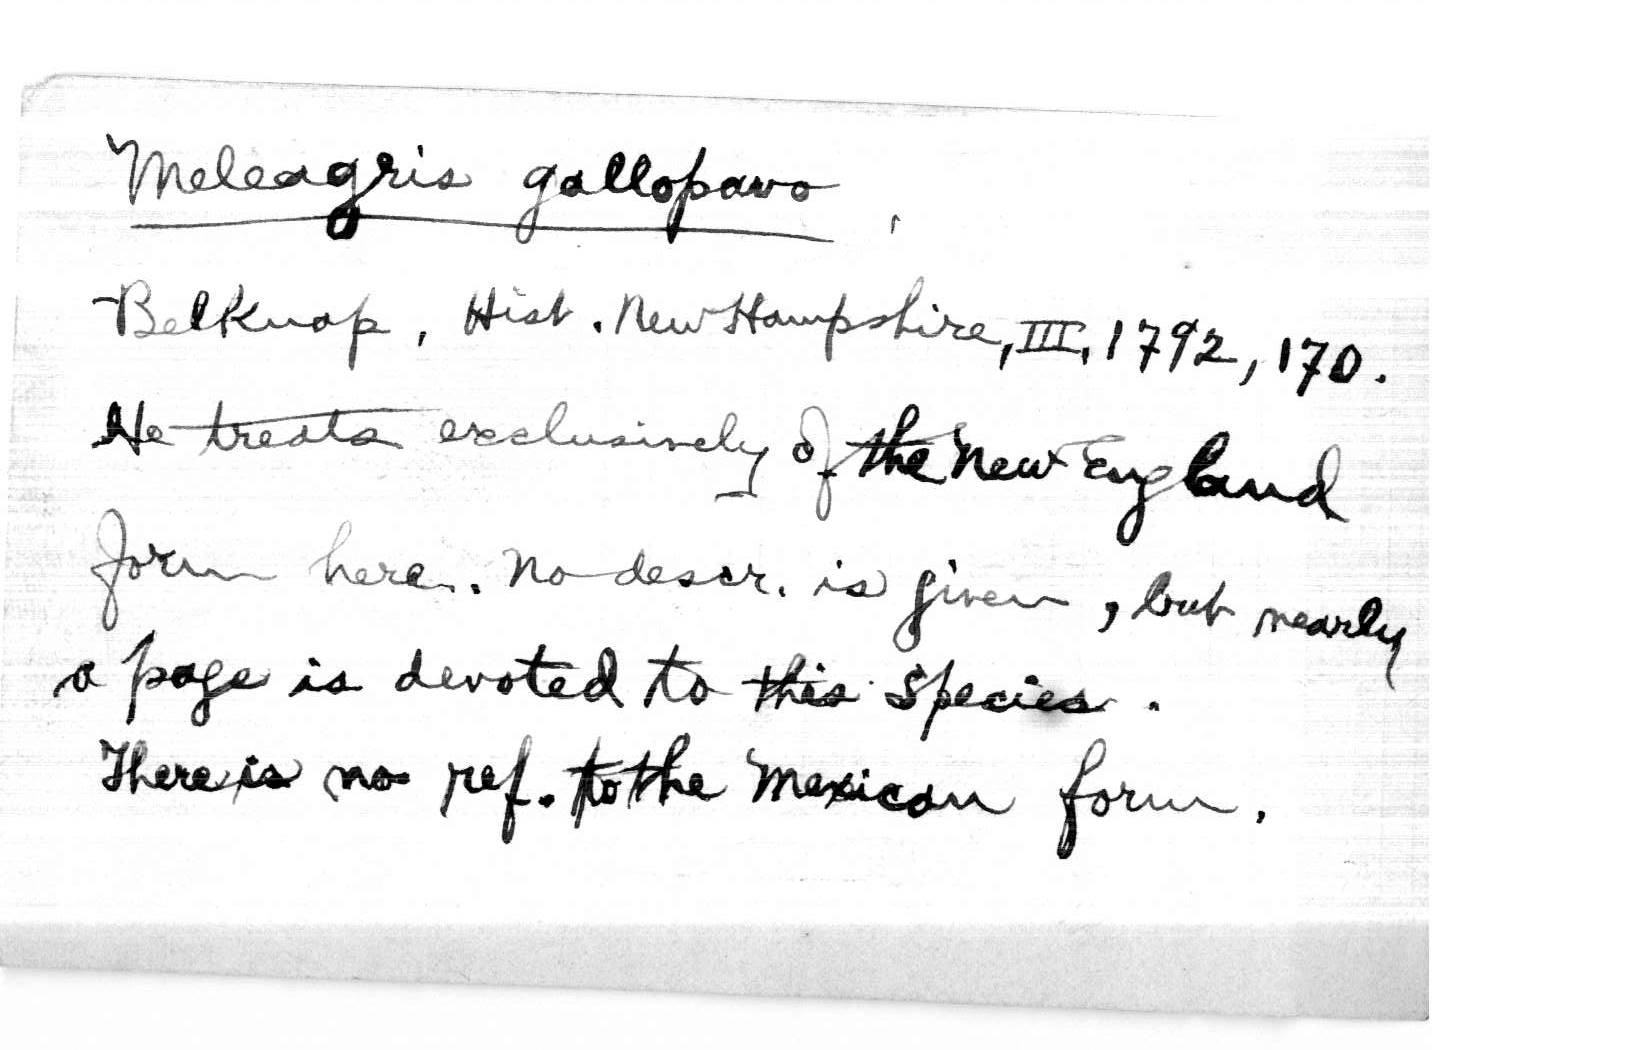 Meleagris gallopavo
Belknap, Hist. New Hampshire, III, 1792, 170.
He treats exclusively of the New England
form here. No descr. is given, but nearly
a page is devoted to this species.
There is no ref. to the Mexican form.